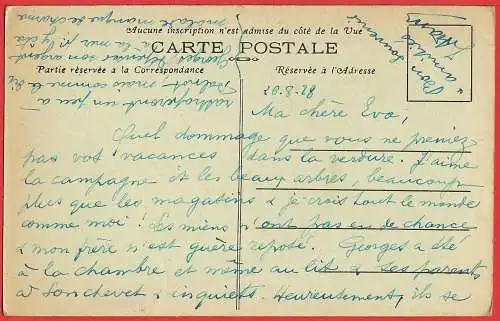 Aucune inscription n'est admise du côté de la Vue
CARTE POSTALE
Partie réservée à la Correspondance
Réservée à l'Adresse
20.8.28
Ma chère Eva,
Quel dommage que vous ne preniez
pas vos vacances dans la verdure. J'aime
la campagne et les beaux arbres, beaucoup
plus que les magasins & je crois tout le monde
comme moi! Les miens n'ont pas eu de chance
& mon frère n'est guère reposé. Georges a été
à la chambre et même au lit & ses parents
inquiets. Heureusement, ils se
rattraperont un peu à
comme le dit
Georges
à la mer
manque de charme
Bon
souvenir